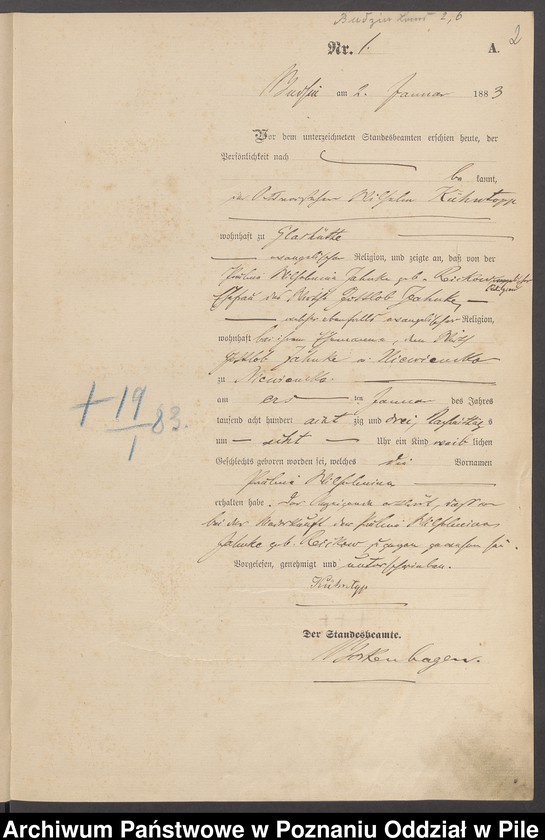 Budzin Land 2,6
2
Nr. 1. A.
Budsin am 2. Januar 1883
Vor dem unterzeichneten Standesbeamten erschien heute, der
Persönlichkeit nach
be kannt,
der Wilhelm Kühntopp
wohnhaft zu Glashütte
evangelischer Religion, und zeigte an, daß von der
Pauline Wilhelmine Jahnke geb. Reckow evangelischer Religion
Ehefrau des Wirths Gottlob Jahnke,
welche ebenfalls evangelischer Religion,
wohnhaft bei ihrem Ehemanne, dem Wirth
Gottlob Jahnke
zu
am ers ten Januar des Jahres
tausend acht hundert acht zig und drei, Nachmittags
um acht Uhr ein Kind weib lichen
Geschlechts geboren worden sei, welches die Vornamen
Pauline Wilhelmine
erhalten habe. Der Anzeigende erklärt, daß er
bei der Niederkunft der Pauline Wilhelmine
Jahnke geb. Reckow zugegen gewesen sei.
Vorgelesen, genehmigt und unterschrieben.
Kühntopp
Der Standesbeamte.
Borkenhagen.
+ 19/1 83.
Archiwum Państwowe w Poznaniu Oddział w Pile